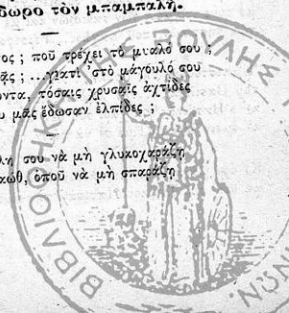 δωρο τὸν μπαμπαλῆ.
ος ; ποῦ τρέχει τὸ μυαλό σου ;
ᾷς ; ...γιατὶ 'στὸ μάγουλό σου
οντα, τόσαις χρυσαῖς ἀχτίδες
υ μᾶς ἔδωσαν ἐλπίδες ;
λη σου νὰ μὴ γλυκοχαράζῃ
ὁποῦ νὰ μὴ σπαράζῃ
ΒΙΒΛΙΟΘΗΚΗ ΤΗΣ ΒΟΥΛΗΣ
ΝΩΝ.